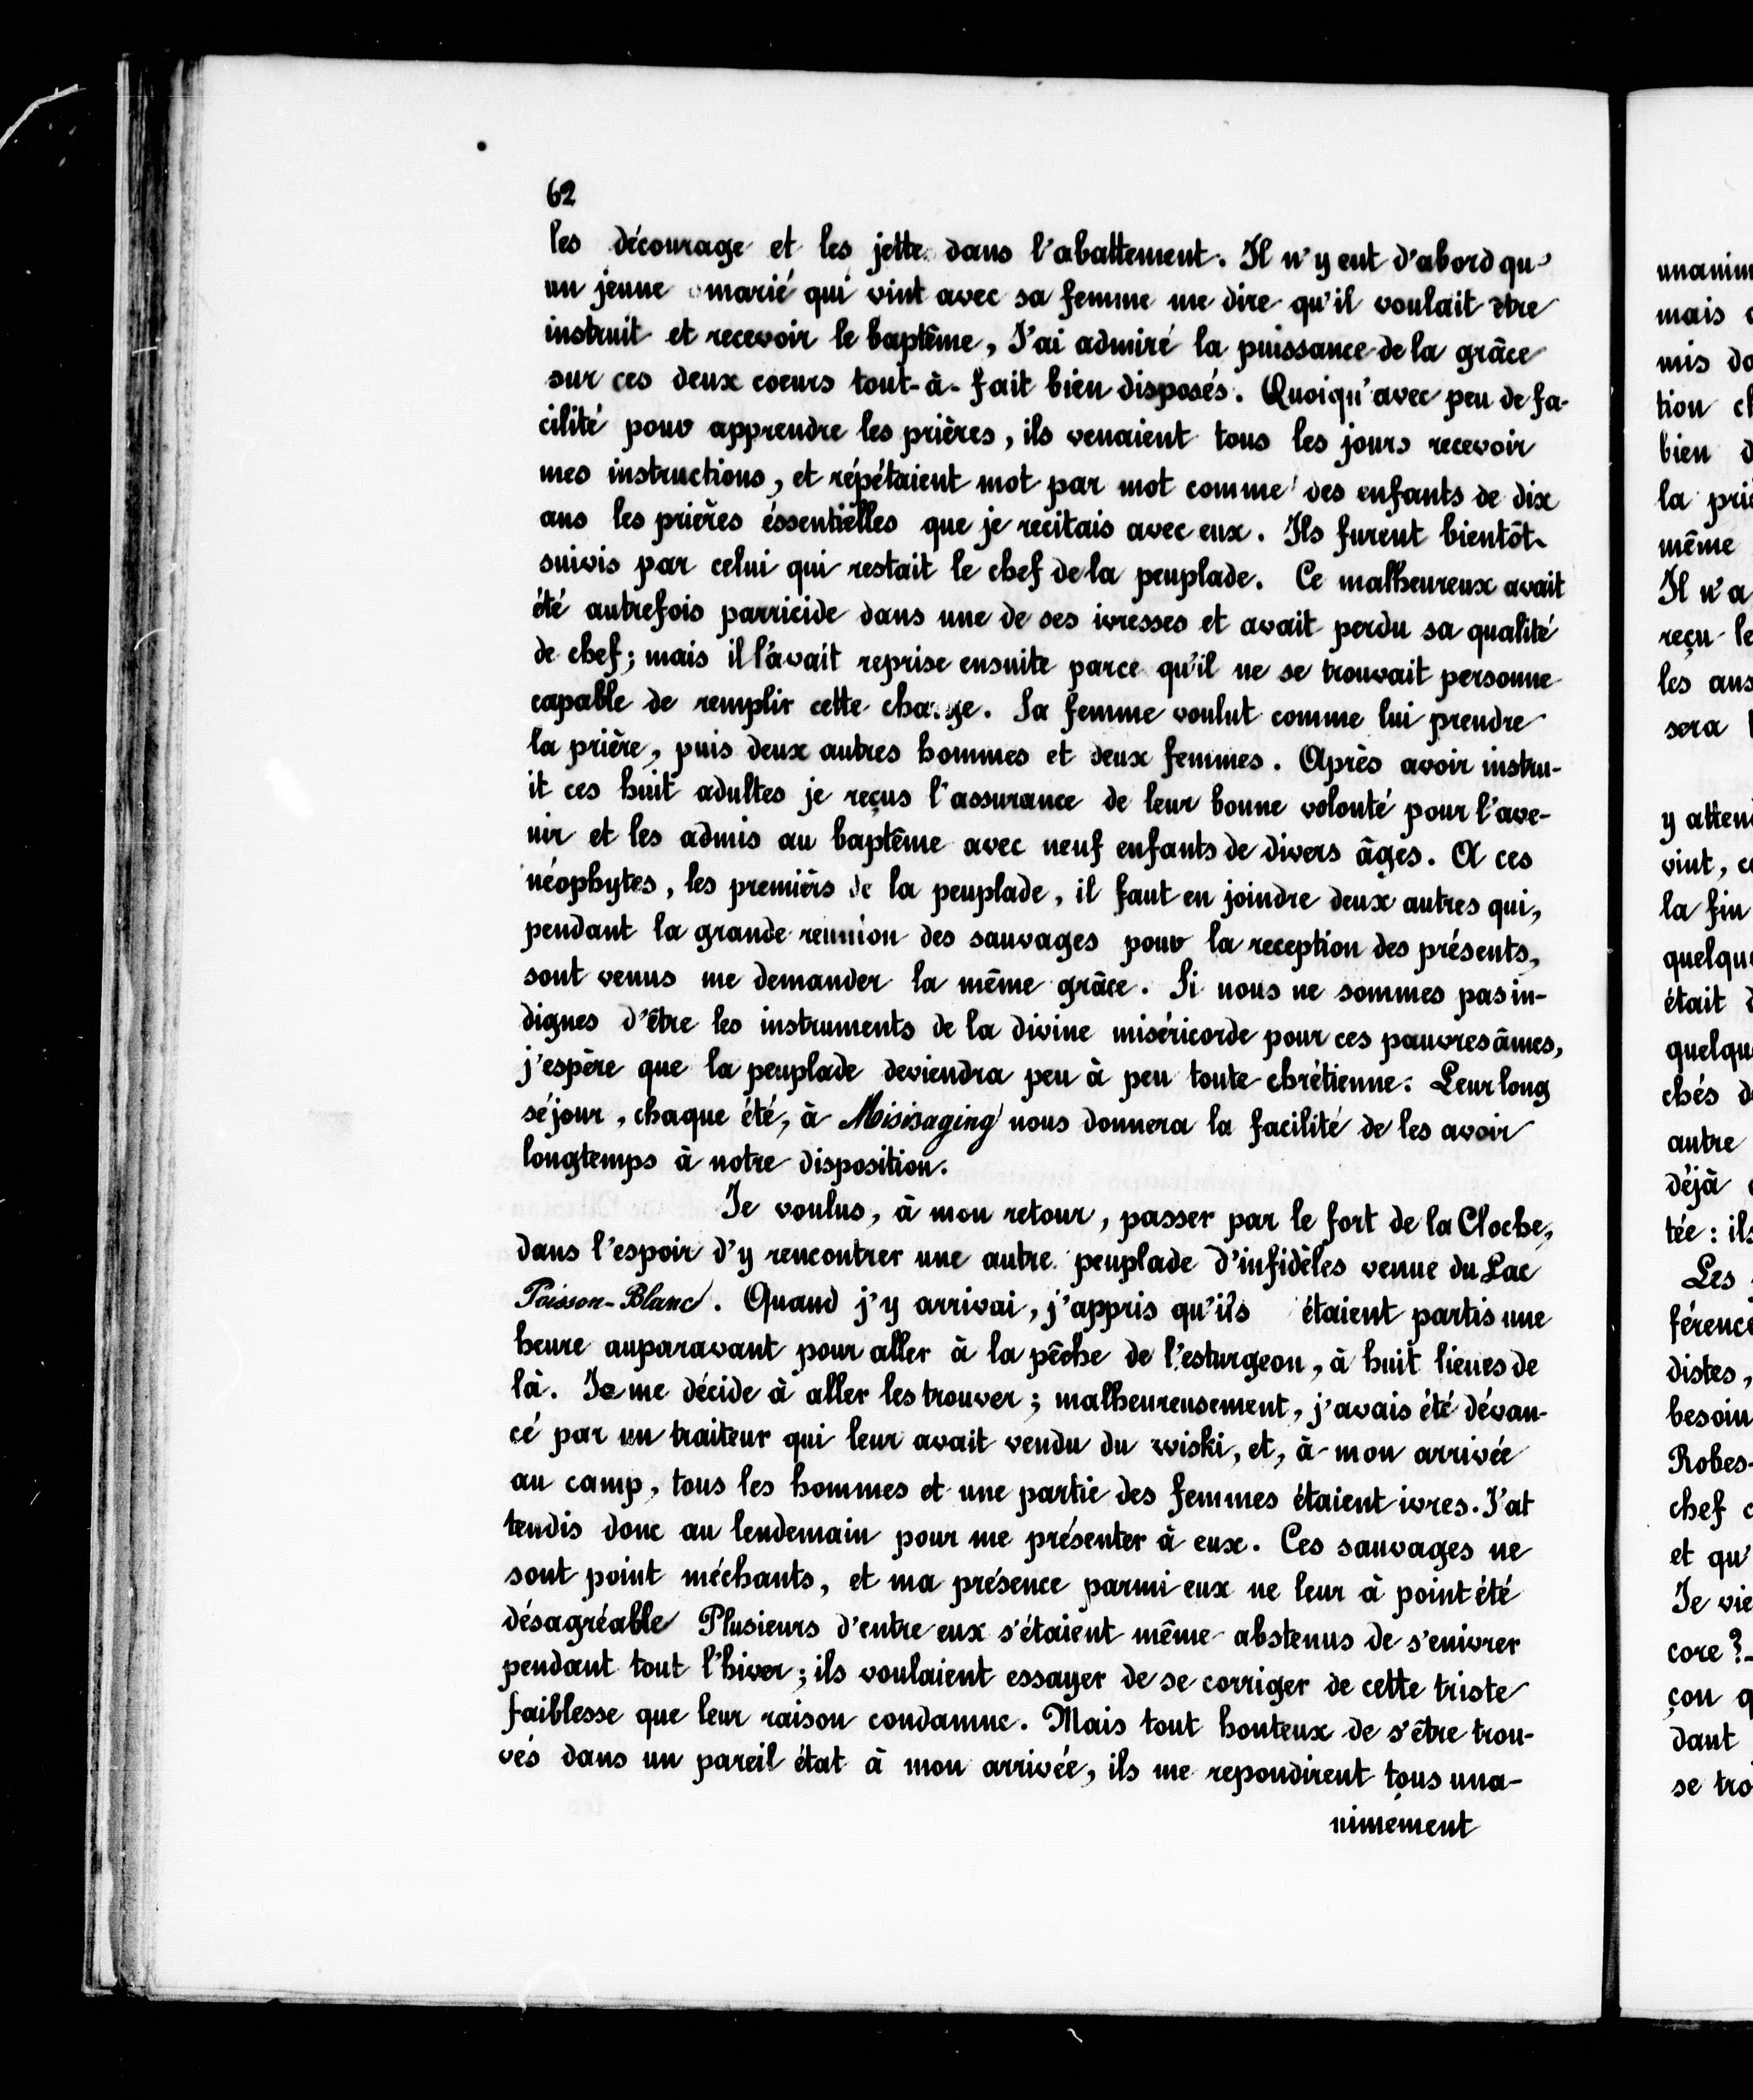 62
les décourage et les jette dans l'abattement. Il n'y eut d'abord qu'
un jeune marié qui vint avec sa femme me dire qu'il voulait être
instruit et recevoir le baptême, J'ai admiré la puissance de la grâce
sur ces deux coeurs tout-à-fait bien disposés. Quoiqu'avec peu de fa-
cilité pour apprendre les prières, ils venaient tous les jours recevoir
mes instructions, et répétaient mot par mot comme des enfants de dix
ans les prières éssentielles que je recitais avec eux. Ils furent bientôt
suivis par celui qui restait le chef de la peuplade. Ce malheureux avait
été autrefois parricide dans une de ses ivresses et avait perdu sa qualité
de chef; mais il l'avait reprise ensuite parce qu'il ne se trouvait personne
capable de remplir cette charge. Sa femme voulut comme lui prendre
la prière, puis deux autres hommes et deux femmes. Après avoir instru-
it ces huit adultes je reçus l'assurance de leur bonne volonté pour l'ave-
nir et les admis au baptême avec neuf enfants de divers âges. A ces
néophytes, les premièrs de la peuplade, il faut en joindre deux autres qui,
pendant la grande reunion des sauvages pour la reception des présents,
sont venus me demander la même grâce. Si nous ne sommes pas in-
dignes d'être les instruments de la divine miséricorde pour ces pauvres âmes,
j'espère que la peuplade deviendra peu à peu toute chrétienne: Leur long
séjour, chaque été, à Misisaging nous donnera la facilité de les avoir
longtemps à notre disposition.
Je voulus, à mon retour, passer par le fort de la Cloche,
dans l'espoir d'y rencontrer une autre peuplade d'infidèles venue du Lac
Poisson-Blanc. Quand j'y arrivai, j'appris qu'ils étaient partis une
heure auparavant pour aller à la pêche de l'esturgeon, à huit lieues de
là. Je me décide à aller les trouver; malheureusement, j'avais été dévan-
cé par un traiteur qui leur avait vendu du wiski, et, à mon arrivée
au camp, tous les hommes et une partie des femmes étaient ivres. J'at
tendis donc au lendemain pour me présenter à eux. Ces sauvages ne
sont point méchants, et ma présence parmi eux ne leur à point été
désagréable Plusieurs d'entre eux s'étaient même abstenus de s'enivrer
pendant tout l'hiver; ils voulaient essayer de se corriger de cette triste
faiblesse que leur raison condamne. Mais tout honteux de s'être trou-
vés dans un pareil état à mon arrivée, ils me repondirent tous una-
nimement
unanim
mais
mis da
tion ch
bien d
la priè
même
Il n'a
reçu le
les ans
sera
y atten
vint, c
la fin
quelqu
était d
quelqu
chés d
autre
déjà
tée: ils
Les
férence
distes,
besoin
Robes-
chef c
et qu'
Je vie
core?-
çon q
dant
se tro